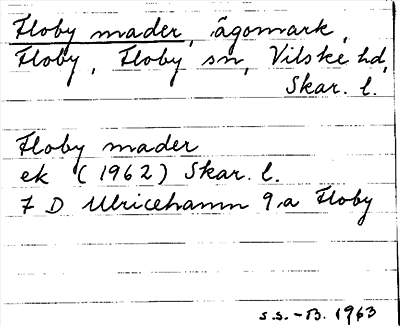 Floby mader, ägomark,
Floby, Floby sn, Vilske hd,
Skar. l.
Floby mader
ek (1962) Skar. l.
7 D Ulricehamn 9,a Floby
s.s.-B. 1963